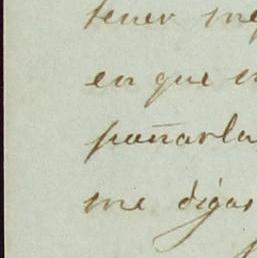 tener me
en que
pañarla
me digas